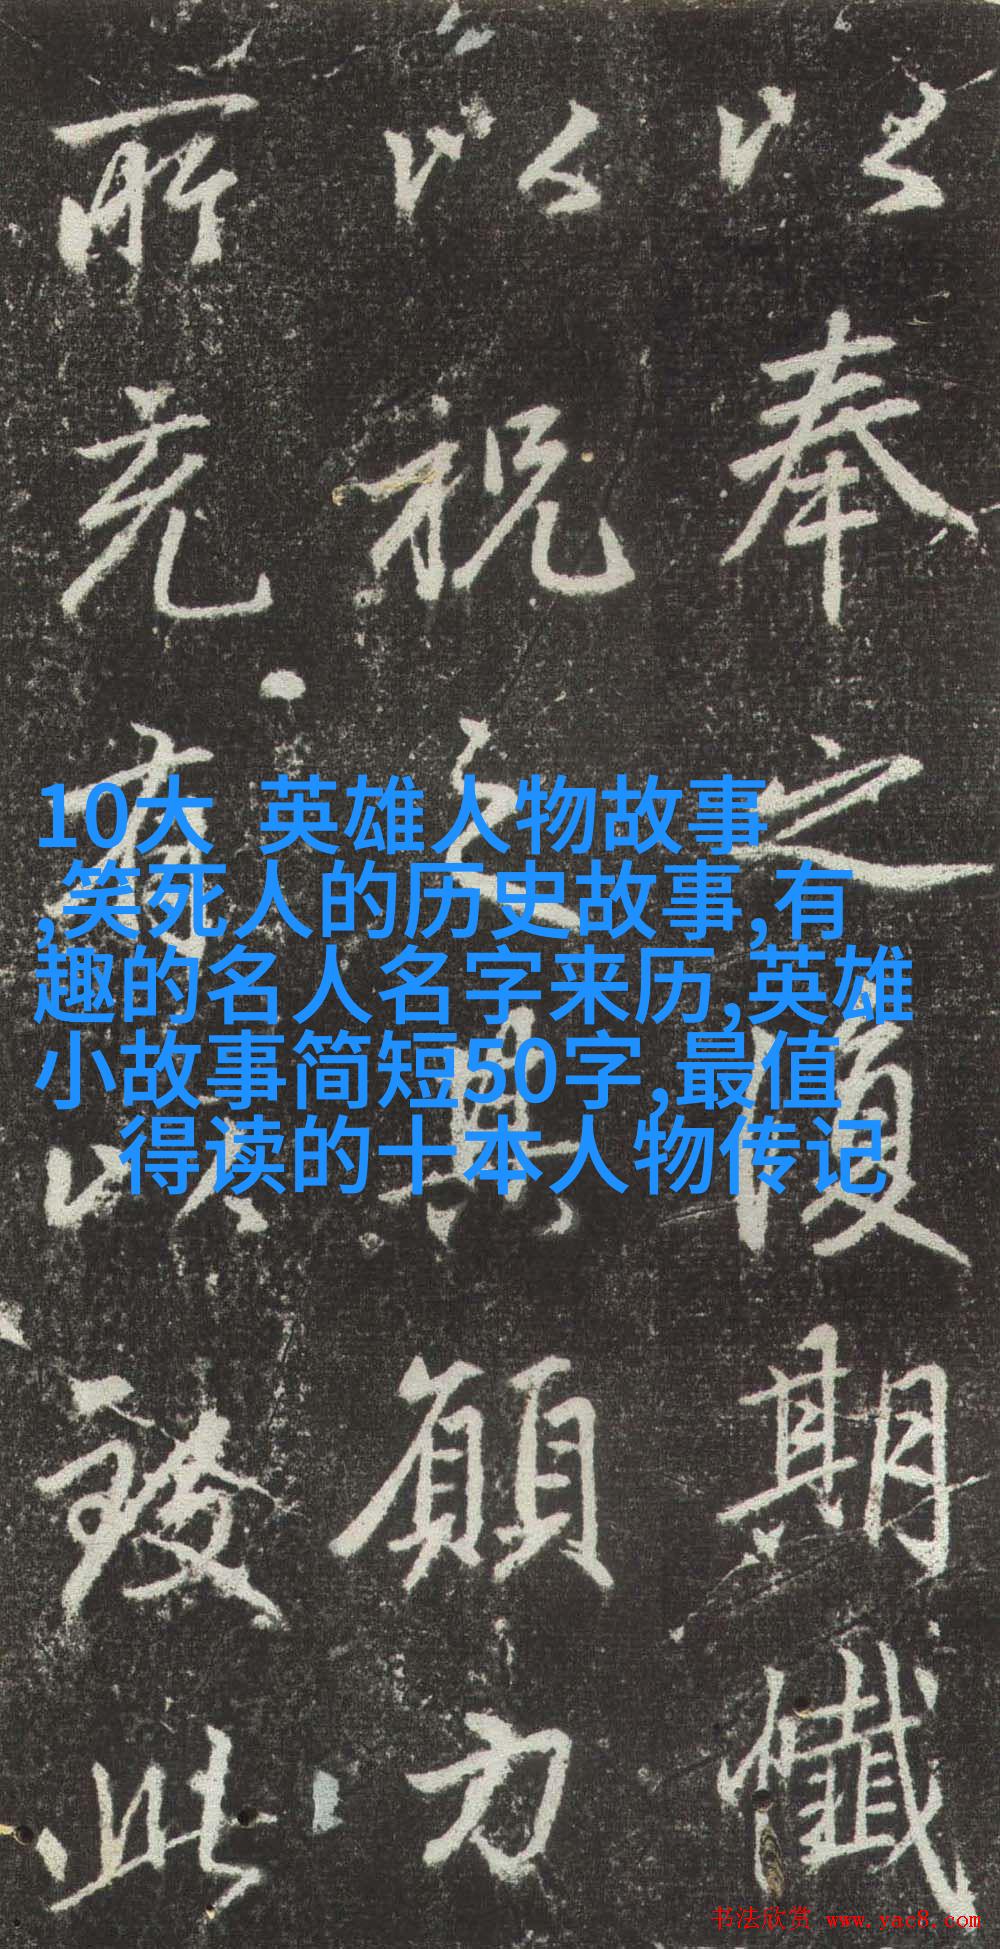 以奉之復期懺
以祝之其願力
所充有以致此
10大 英雄人物故事
,笑死人的历史故事,有
趣的名人名字来历,英雄
小故事简短50字,最值
得读的十本人物传记
书法欣赏 www.yac8.com